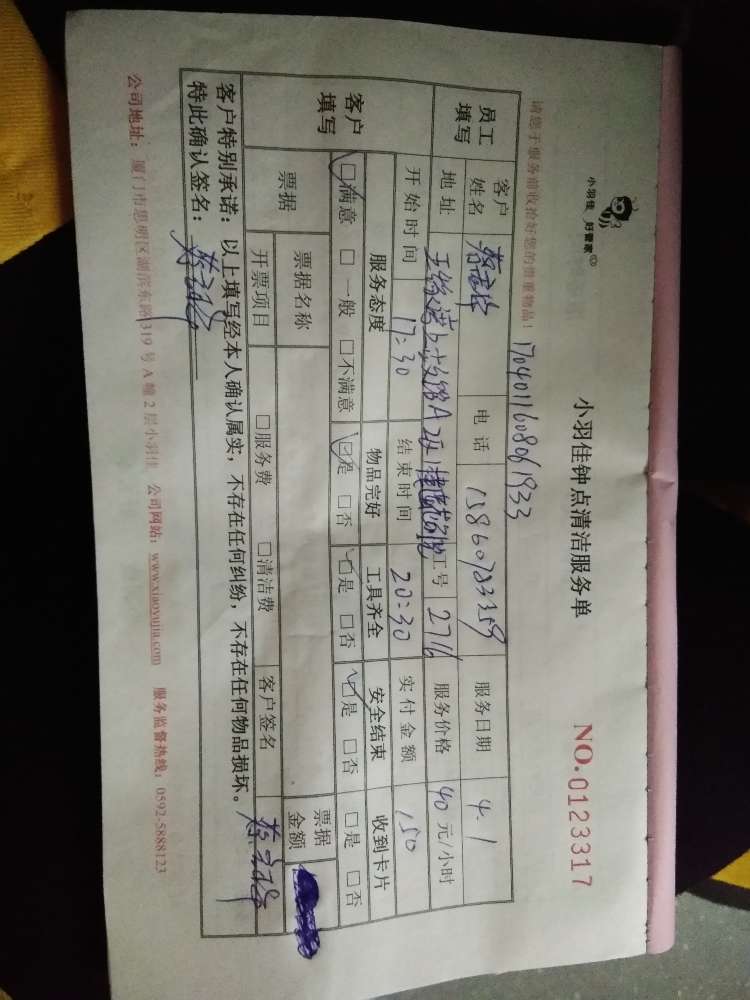 小羽佳 好管家
小羽佳钟点清洁服务单
NO.0123317
请您于服务前收拾好您的贵重物品！
1704011608061933
员工填写 客户姓名 电话 13860783359 服务日期 4.1
地址 A 工号 2716 服务价格 40 元/小时
开始时间 17:30 结束时间 20:30 实付金额 150
客户填写 服务态度 物品完好 工具齐全 安全结束 收到卡片
□满意 □一般 □不满意 □是 □否 □是 □否 □是 □否 □是 □否
票据 票据名称 票据金额
开票项目 □服务费 □清洁费 客户签名
客户特别承诺：以上填写经本人确认属实，不存在任何纠纷，不存在任何物品损坏。
特此确认签名：
公司地址：厦门市思明区湖滨东路319号A幢2层小羽佳 公司网站：www.xiaoyujia.com 服务监督热线：0592-5888123